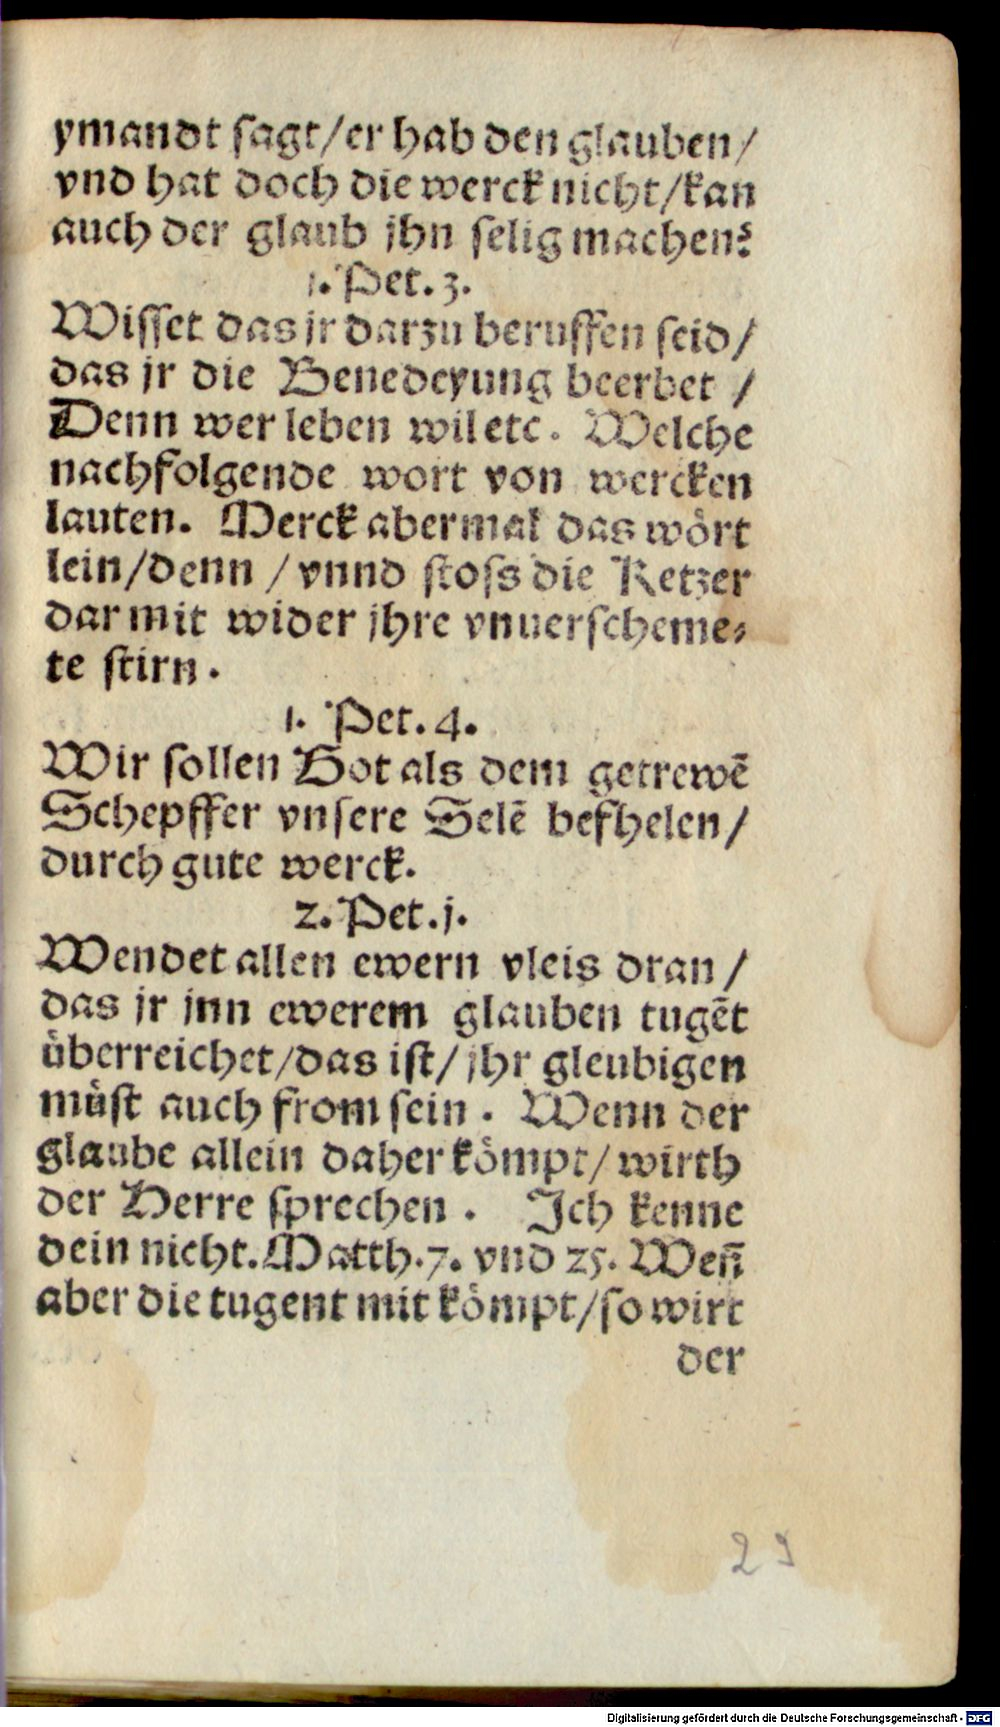 ymandt sagt/er hab den glauben/
vnd hat doch die werck nicht/kan
auch der glaub jhn selig machen?
1. Pet. 3.
Wisset das jr darzu beruffen seid/
das jr die Benedeyung beerbet /
Denn wer leben wil etc. Welche
nachfolgende wort von wercken
lauten. Merck abermal das wört
lein/denn / vnnd stoss die Ketzer
dar mit wider jhre vnuerscheme⸗
te stirn.
1. Pet. 4.
Wir sollen Got als dem getrewē
Schepffer vnsere Selē befhelen/
durch gute werck.
2. Pet. j.
Wendet allen ewern vleis dran/
das jr jnn ewerem glauben tugēt
überreichet/das ist/jhr gleubigen
müst auch from sein. Wenn der
glaube allein daher kömpt/wirth
der Herre sprechen. Ich kenne
dein nicht. Matth. 7. vnd 25. Wen̄
aber die tugent mit kömpt/so wirt
der
29
Digitalisierung gefördert durch die Deutsche Forschungsgemeinschaft - DFG